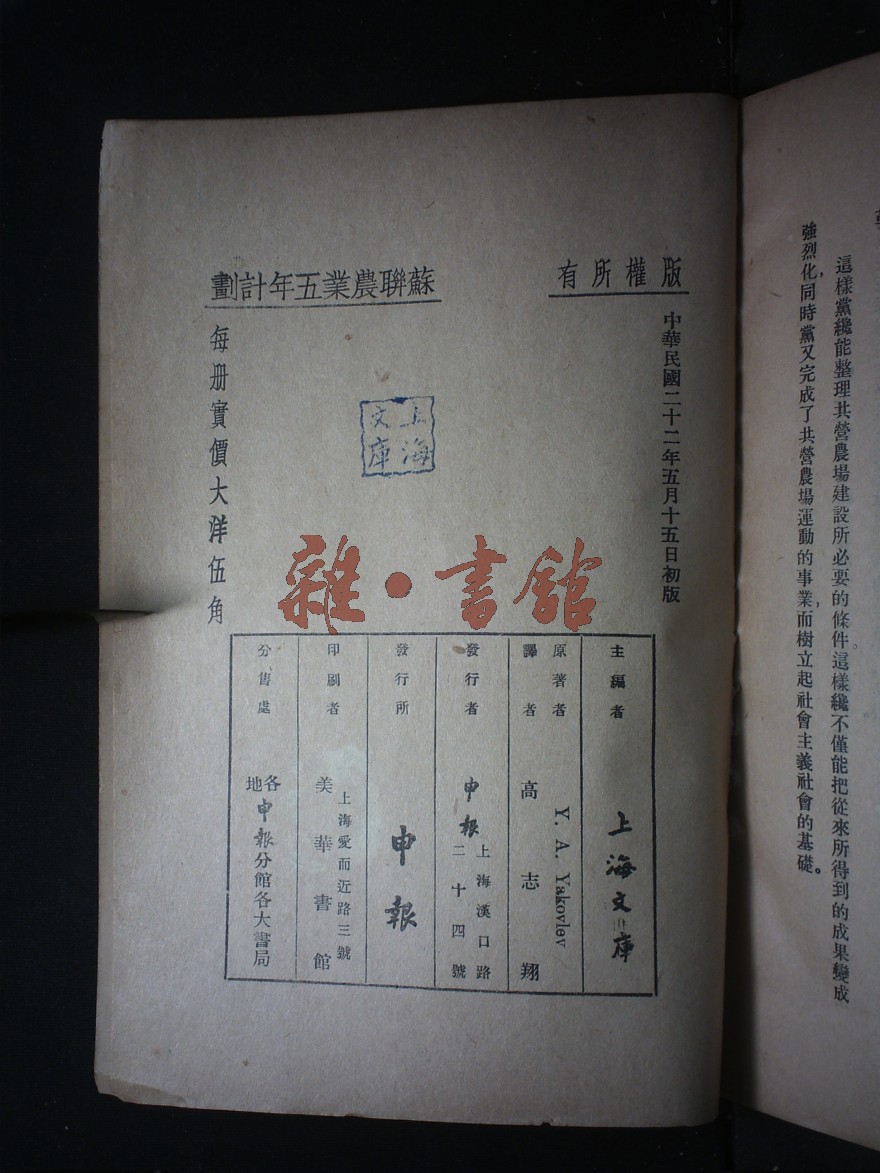 強烈化,同時黨又完成了共營農場運動的事業,而樹立起社會主義社會的基礎。
這樣黨纔能整理共營農場建設所必要的條件。這樣纔不僅能把從來所得到的成果變成
版權所有
中華民國二十二年五月十五日初版
蘇聯農業五年計劃
每册實價大洋伍角
上海文庫
雜·書館
主編者 上海文庫
原著者 Y. A. Yakovlev
譯者 高志翔
發行者 申報 上海漢口路二十四號
發行所 申報
印刷者 美華書館 上海愛而近路三號
分售處 各地申報分館各大書局